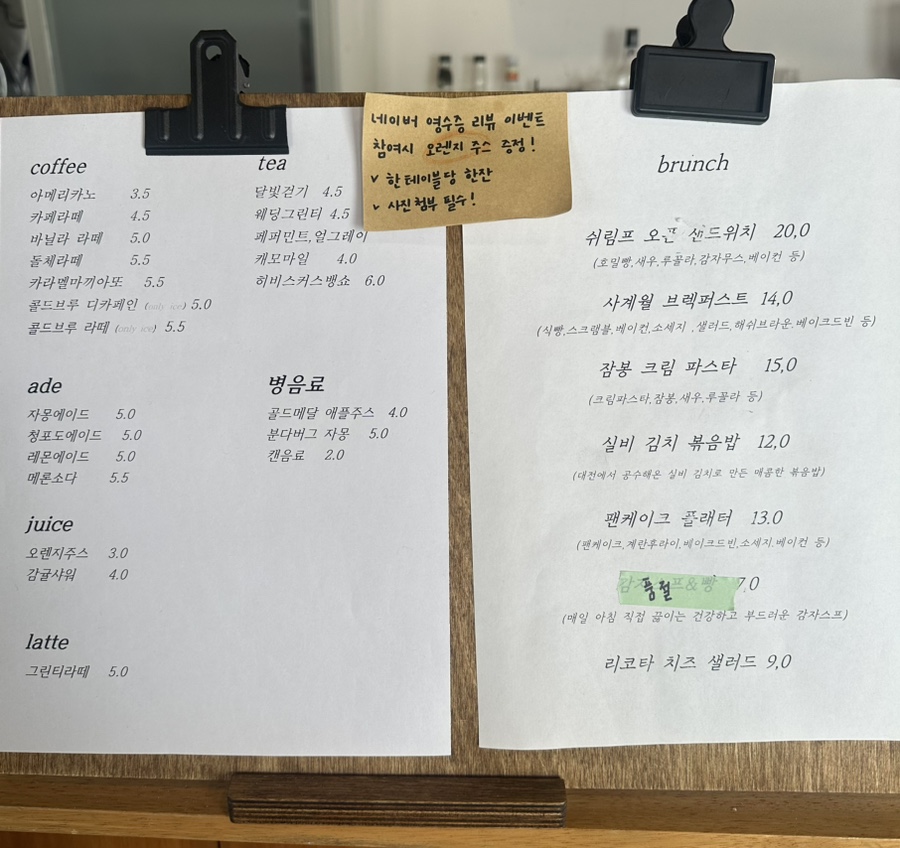 네이버 영수증 리뷰 이벤트
참여시 오렌지 주스 증정!
✓ 한테이블당 한잔
✓ 사진첨부 필수!
coffee
아메리카노 3.5
카페라떼 4.5
바닐라 라떼 5.0
돌체라떼 5.5
카라멜마끼아또 5.5
콜드브루 디카페인 (only ice) 5.0
콜드브루 라떼 (only ice) 5.5
tea
달빛걷기 4.5
웨딩그린티 4.5
페퍼민트,얼그레이
캐모마일 4.0
히비스커스뱅쇼 6.0
ade
자몽에이드 5.0
청포도에이드 5.0
레몬에이드 5.0
메론소다 5.5
병음료
골드메달 애플주스 4.0
분다버그 자몽 5.0
캔음료 2.0
juice
오렌지주스 3.0
감귤샤워 4.0
latte
그린티라떼 5.0
brunch
쉬림프 오픈 샌드위치 20,0
(호밀빵,새우,루꼴라,감자무스,베이컨 등)
사계월 브렉퍼스트 14,0
(식빵,스크램블,베이컨,소세지 ,샐러드,해쉬브라운.베이크드빈 등)
잠봉 크림 파스타 15,0
(크림파스타,잠봉,새우,루꼴라 등)
실비 김치 볶음밥 12,0
(대전에서 공수해온 실비 김치로 만든 매콤한 볶음밥)
팬케이크 플래터 13.0
(팬케이크,계란후라이,베이크드빈,소세지.베이컨 등)
품절 7,0
(매일 아침 직접 끓이는 건강하고 부드러운 감자스프)
리코타 치즈 샐러드 9,0